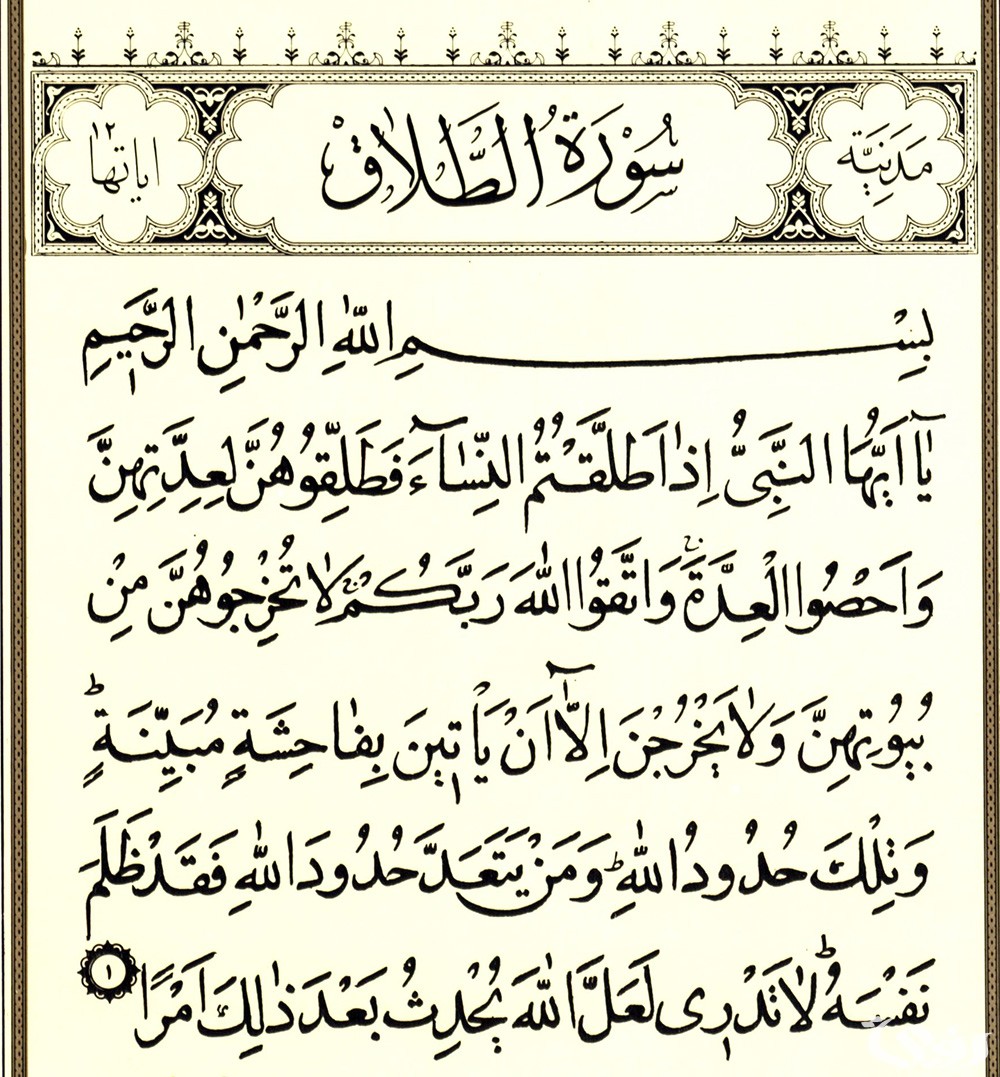 مَدَنِيَّة سُوْرَةُ الطَّلَاق اياتها ١٢
بِسْمِ اللّٰهِ الرَّحْمٰنِ الرَّحٖيمِ
يَٓا اَيُّهَا النَّبِىُّ اِذَا طَلَّقْتُمُ النِّسَٓاءَ فَطَلِّقُوهُنَّ لِعِدَّتِهِنَّ
وَاَحْصُوا الْعِدَّةَۚ وَاتَّقُوا اللّٰهَ رَبَّكُمْۚ لَا تُخْرِجُوهُنَّ مِنْ
بُيُوتِهِنَّ وَلَا يَخْرُجْنَ اِلَّٓا اَنْ يَاْتٖينَ بِفَاحِشَةٍ مُبَيِّنَةٍؕ
وَتِلْكَ حُدُودُ اللّٰهِؕ وَمَنْ يَتَعَدَّ حُدُودَ اللّٰهِ فَقَدْ ظَلَمَ
نَفْسَهُؕ لَا تَدْرٖى لَعَلَّ اللّٰهَ يُحْدِثُ بَعْدَ ذٰلِكَ اَمْرًا ١